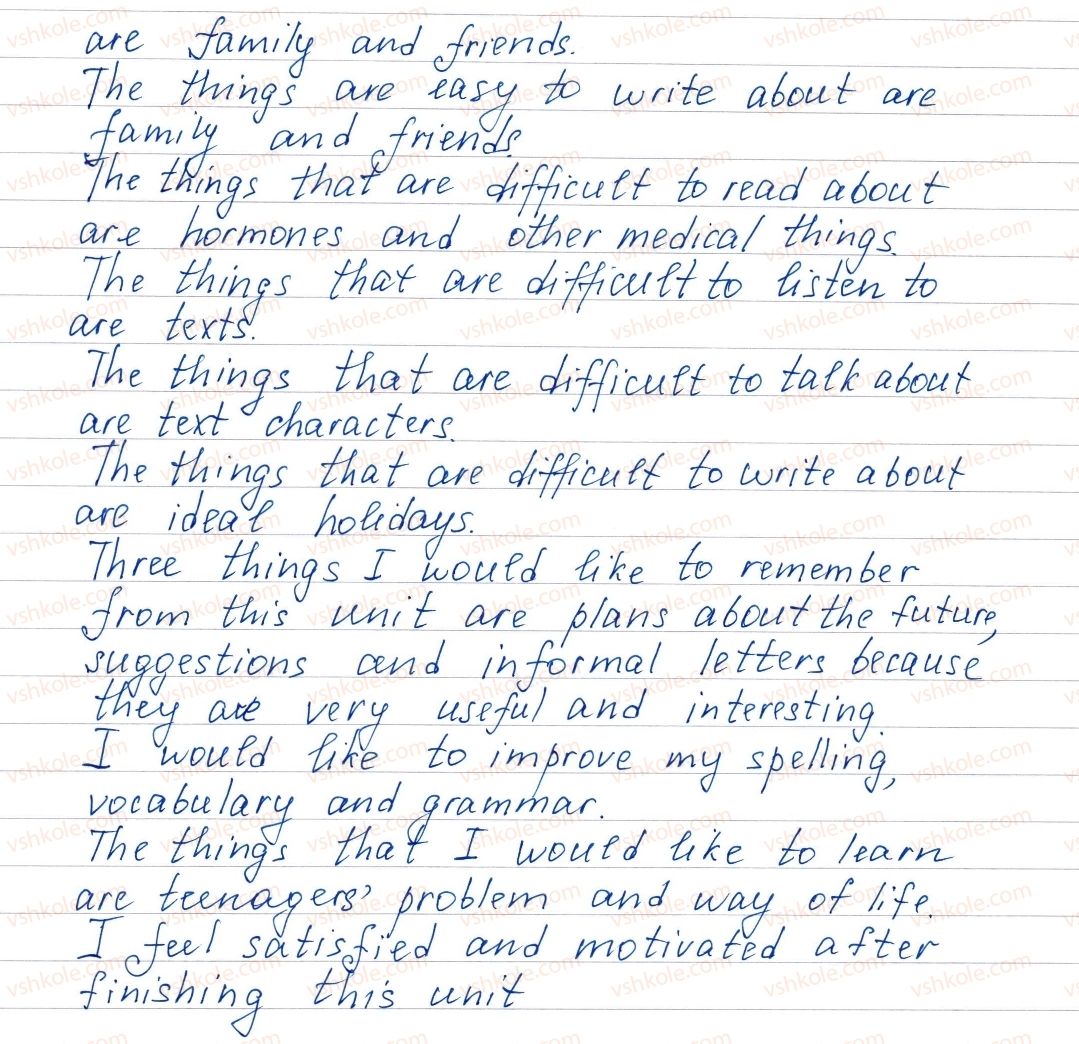 are family and friends.
The things are easy to write about are
family and friends.
The things that are difficult to read about
are hormones and other medical things.
The things that are difficult to listen to
are texts.
The things that are difficult to talk about
are text characters.
The things that are difficult to write about
are ideal holidays.
Three things I would like to remember
from this unit are plans about the future,
suggestions and informal letters because
they are very useful and interesting.
I would like to improve my spelling,
vocabulary and grammar.
The things that I would like to learn
are teenagers' problem and way of life.
I feel satisfied and motivated after
finishing this unit